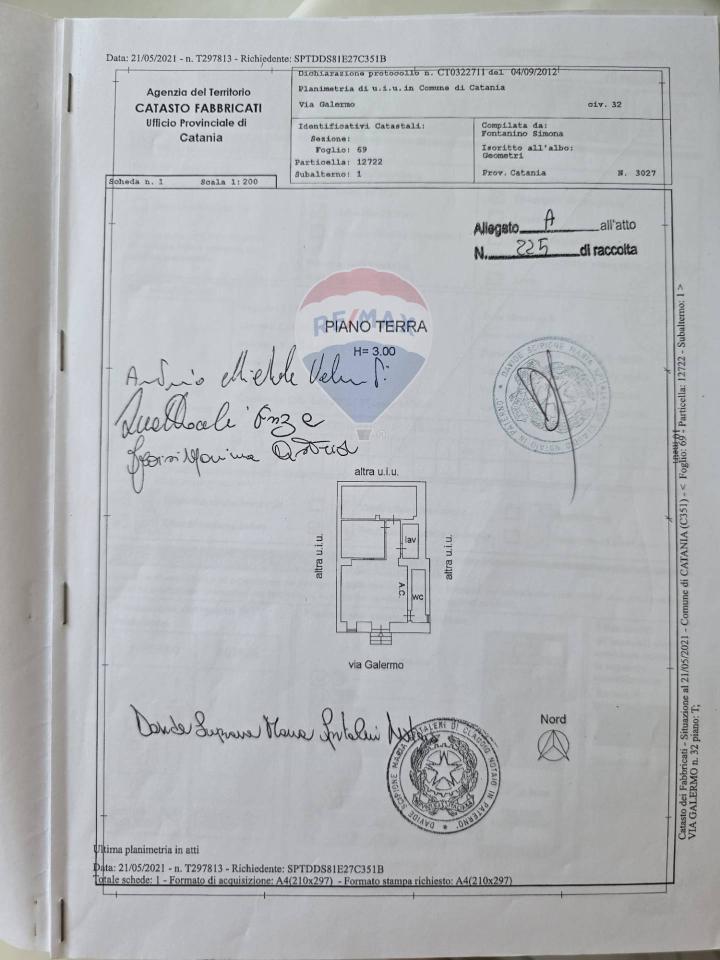 Data: 21/05/2021 - n. T297813 - Richiedente: SPTDDS81E27C351B
Agenzia del Territorio
CATASTO FABBRICATI
Ufficio Provinciale di
Catania
Dichiarazione protocollo n. CT0322711 del 04/09/2012
Planimetria di u.i.u.in Comune di Catania
Via Galermo civ. 32
Identificativi Catastali:
Sezione:
Foglio: 69
Particella: 12722
Subalterno: 1
Compilata da:
Fontanino Simona
Iscritto all'albo:
Geometri
Prov. Catania N. 3027
Scheda n. 1 Scala 1:200
Allegato A all'atto
N. 225 di raccolta
RE/MAX
PIANO TERRA
H= 3.00
altra u.i.u.
altra u.i.u.
altra u.i.u.
lav
A.C.
wc
via Galermo
Nord
DAVIDE SCIPIONE MARIA SPATALERI DI CLAUDIO NOTAIO IN PATERNO'
Ultima planimetria in atti
Data: 21/05/2021 - n. T297813 - Richiedente: SPTDDS81E27C351B
Totale schede: 1 - Formato di acquisizione: A4(210x297) - Formato stampa richiesto: A4(210x297)
Catasto dei Fabbricati - Situazione al 21/05/2021 - Comune di CATANIA (C351) - < Foglio: 69 - Particella: 12722 - Subalterno: 1 >
VIA GALERMO n. 32 piano: T;